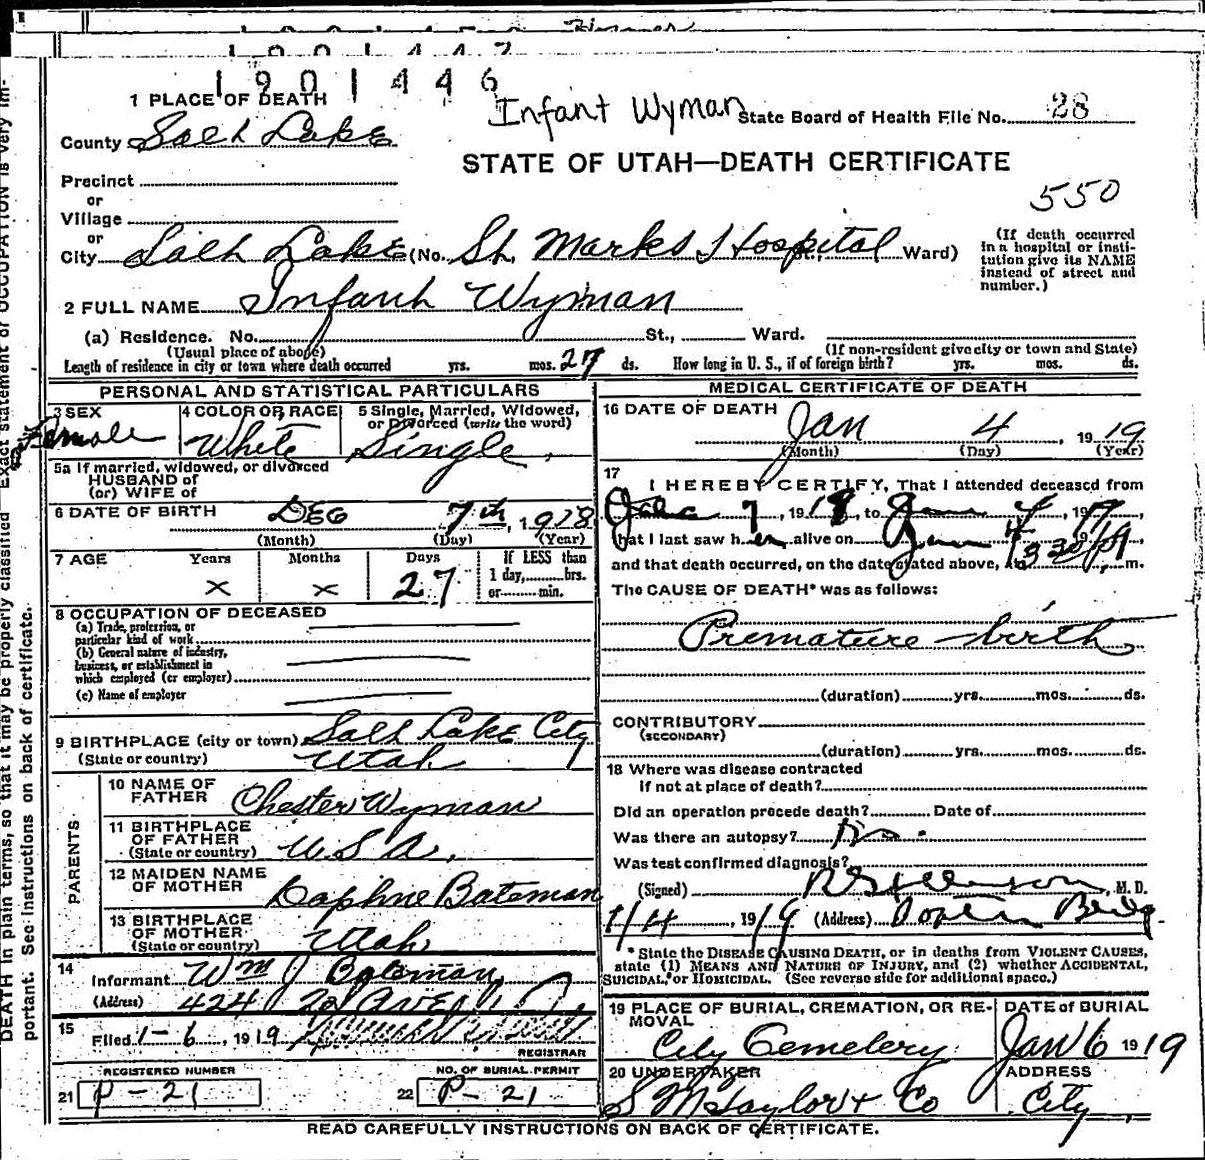 1901447
1901446
Infant Wyman
State Board of Health File No. 28
1 PLACE OF DEATH
County Salt Lake
STATE OF UTAH—DEATH CERTIFICATE
Precinct
or
Village
550
or
City Salt Lake (No. St. Marks Hospital St., Ward)
(If death occurred in a hospital or insti-
tution give its NAME
instead of street and
number.)
2 FULL NAME Infant Wyman
(a) Residence. No. St., Ward.
(Usual place of abode) (If non-resident give city or town and State)
Length of residence in city or town where death occurred yrs. mos. 27 ds. How long in U. S., if of foreign birth? yrs. mos. ds.
PERSONAL AND STATISTICAL PARTICULARS
3 SEX
Female
4 COLOR OR RACE
White
5 Single, Married, Widowed,
or Divorced (write the word)
Single.
5a If married, widowed, or divorced
HUSBAND of
(or) WIFE of
6 DATE OF BIRTH Dec 7th, 1918
(Month) (Day) (Year)
7 AGE Years Months Days If LESS than
1 day, hrs.
or min.
x x 27
8 OCCUPATION OF DECEASED
(a) Trade, profession, or
particular kind of work
(b) General nature of industry,
business, or establishment in
which employed (or employer)
(c) Name of employer
9 BIRTHPLACE (city or town) Salt Lake City
(State or country) Utah
PARENTS
10 NAME OF
FATHER Chester Wyman
11 BIRTHPLACE
OF FATHER
(State or country) U S A.
12 MAIDEN NAME
OF MOTHER Daphne Bateman
13 BIRTHPLACE
OF MOTHER
(State or country) Utah
14
Informant Wm J Bateman
(Address) 424 Ave
15
Filed 1-6, 1919
REGISTRAR
REGISTERED NUMBER
21 P-21
NO. OF BURIAL PERMIT
22 P-21
MEDICAL CERTIFICATE OF DEATH
16 DATE OF DEATH
Jan 4, 1919
(Month) (Day) (Year)
17
I HEREBY CERTIFY, That I attended deceased from
7, 1918, to Jan 4, 19
that I last saw her alive on Jan 4
and that death occurred, on the date stated above, m.
The CAUSE OF DEATH* was as follows:
Premature birth
(duration) yrs. mos. ds.
CONTRIBUTORY
(SECONDARY)
(duration) yrs. mos. ds.
18 Where was disease contracted
if not at place of death?
Did an operation precede death? Date of
Was there an autopsy? No.
Was test confirmed diagnosis?
(Signed) M. D.
1/4, 1919 (Address) Bldg
*State the DISEASE CAUSING DEATH, or in deaths from VIOLENT CAUSES,
state (1) MEANS AND NATURE OF INJURY, and (2) whether ACCIDENTAL,
SUICIDAL, or HOMICIDAL. (See reverse side for additional space.)
19 PLACE OF BURIAL, CREMATION, OR RE-
MOVAL
City Cemetery
DATE of BURIAL
Jan 6 1919
20 UNDERTAKER
S M Taylor + Co
ADDRESS
City
READ CAREFULLY INSTRUCTIONS ON BACK OF CERTIFICATE.
DEATH in plain terms, so that it may be properly classified. Exact statement of OCCUPATION is very im-
portant. See instructions on back of certificate.